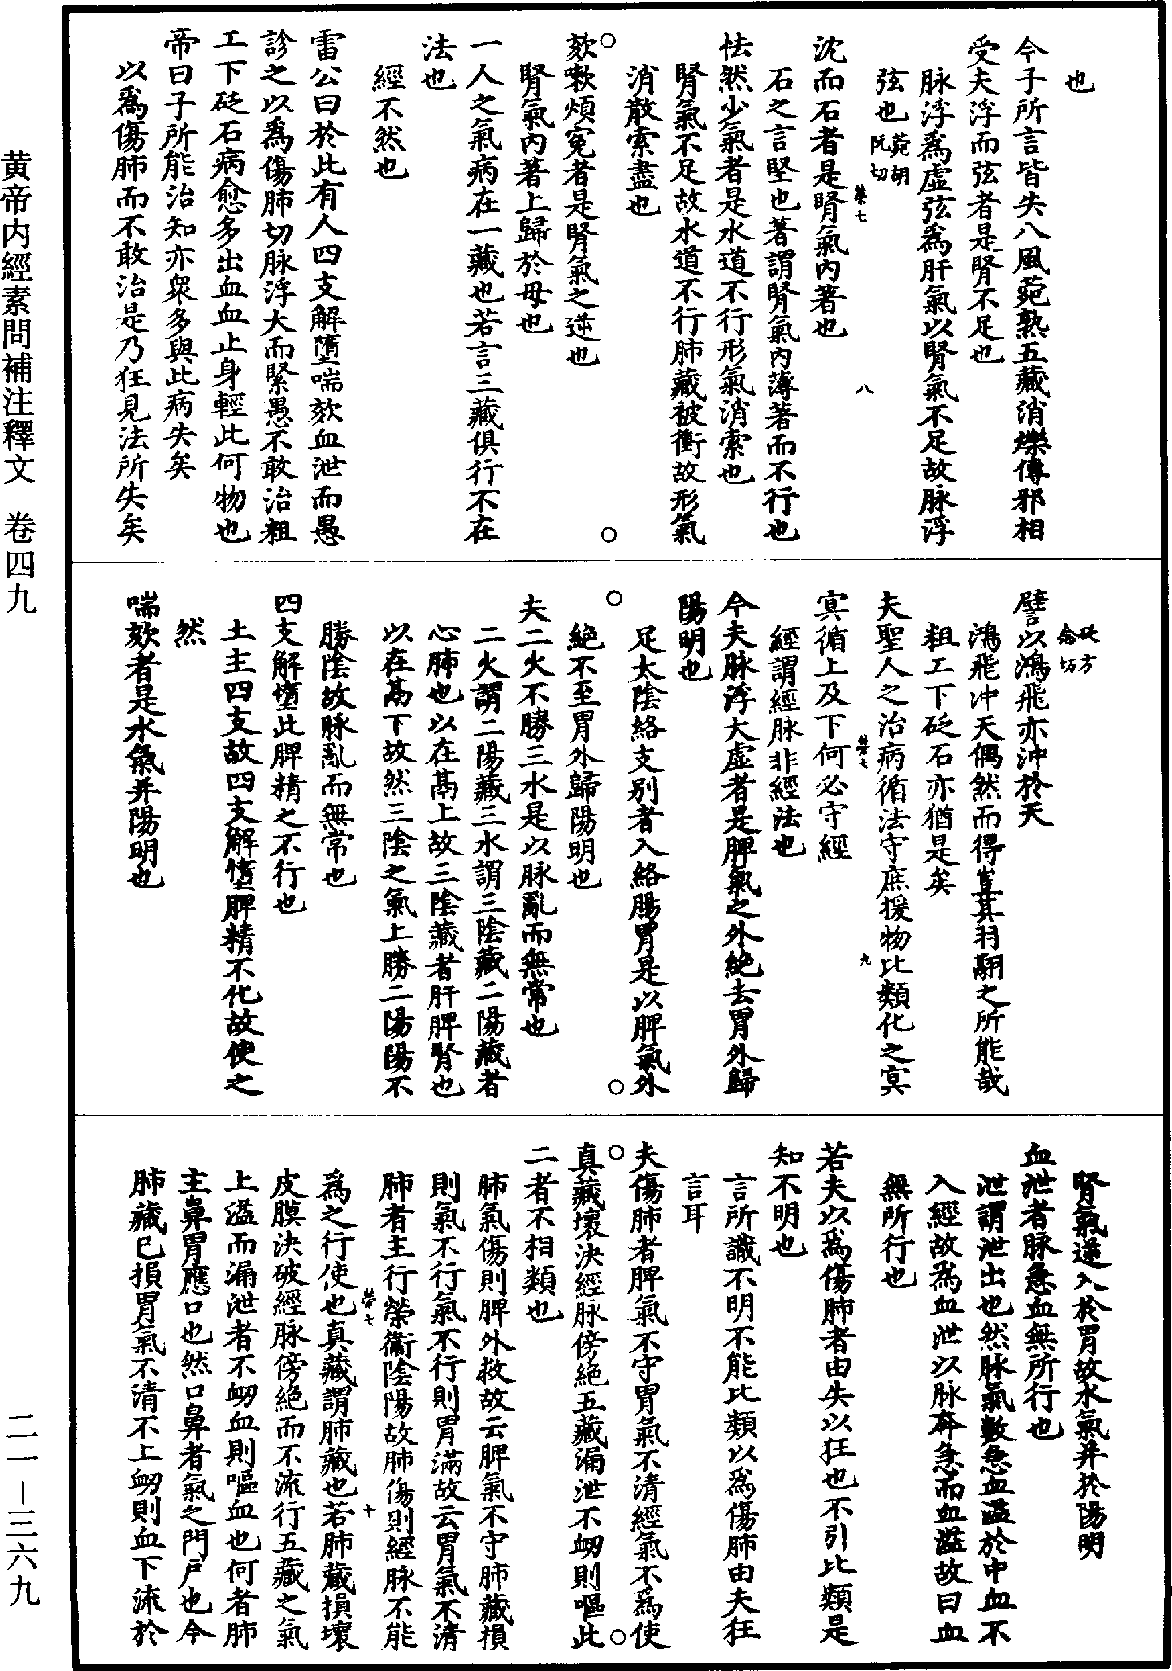 也
今子所言皆失八風菀熟五藏消爍傳邪相
受夫浮而弦者是腎不足也
脉浮爲虛弦爲肝氣以腎氣不足故脉浮
弦也菀胡阮切
沈而石者是腎氣內著也
石之言堅也著謂腎氣內薄著而不行也
怯然少氣者是水道不行形氣消索也
腎氣不足故水道不行肺藏被衝故形氣
消散索盡也
欬嗽煩寃者是腎氣之逆也
腎氣內著上歸於母也
一人之氣病在一藏也若言三藏俱行不在
法也
經不然也
雷公曰於此有人四支解墮喘欬血泄而愚
診之以爲傷肺切脉浮大而緊愚不敢治粗
工下砭石病愈多出血血止身輕此何物也
帝曰子所能治知亦衆多與此病失矣
以爲傷肺而不敢治是乃狂見法所失矣
砭方念切
譬以鴻飛亦沖於天
鴻飛冲天偶然而得豈其羽翮之所能哉
粗工下砭石亦猶是矣
夫聖人之治病循法守庶援物比類化之冥
冥循上及下何必守經
經謂經脉非經法也
今夫脉浮大虛者是脾氣之外絶去胃外歸
陽明也
足太陰絡支別者入絡腸胃是以脾氣外
絶不至胃外歸陽明也
夫二火不勝三水是以脉亂而無常也
二火謂二陽藏三水謂三陰藏二陽藏者
心肺也以在髙上故三陰藏者肝脾腎也
以在髙下故然三陰之氣上勝二陽陽不
勝陰故脉亂而無常也
四支解墮此脾精之不行也
土主四支故四支解墮脾精不化故使之
然
喘欬者是水氣并陽明也
腎氣逆入於胃故水氣并於陽明
血泄者脉急血無所行也
泄謂泄出也然脉氣數急血溢於中血不
入經故爲血泄以脉奔急而血溢故曰血
無所行也
若夫以爲傷肺者由失以狂也不引比類是
知不明也
言所識不明不能比類以爲傷肺由夫狂
言耳
夫傷肺者脾氣不守胃氣不清經氣不爲使
真藏壞決經脉傍絶五藏漏泄不衂則嘔此
二者不相類也
肺氣傷則脾外救故云脾氣不守肺藏損
則氣不行氣不行則胃滿故云胃氣不清
肺者主行榮衞陰陽故肺傷則經脉不能
爲之行使也真藏謂肺藏也若肺藏損壞
皮膜決破經脉傍絶而不流行五藏之氣
上溢而漏泄者不衂血則嘔血也何者肺
主鼻胃應口也然口鼻者氣之門戸也今
肺藏已損胃氣不清不上衂則血下流於
黄帝内經素問補注釋文　卷四九
二一—三六九